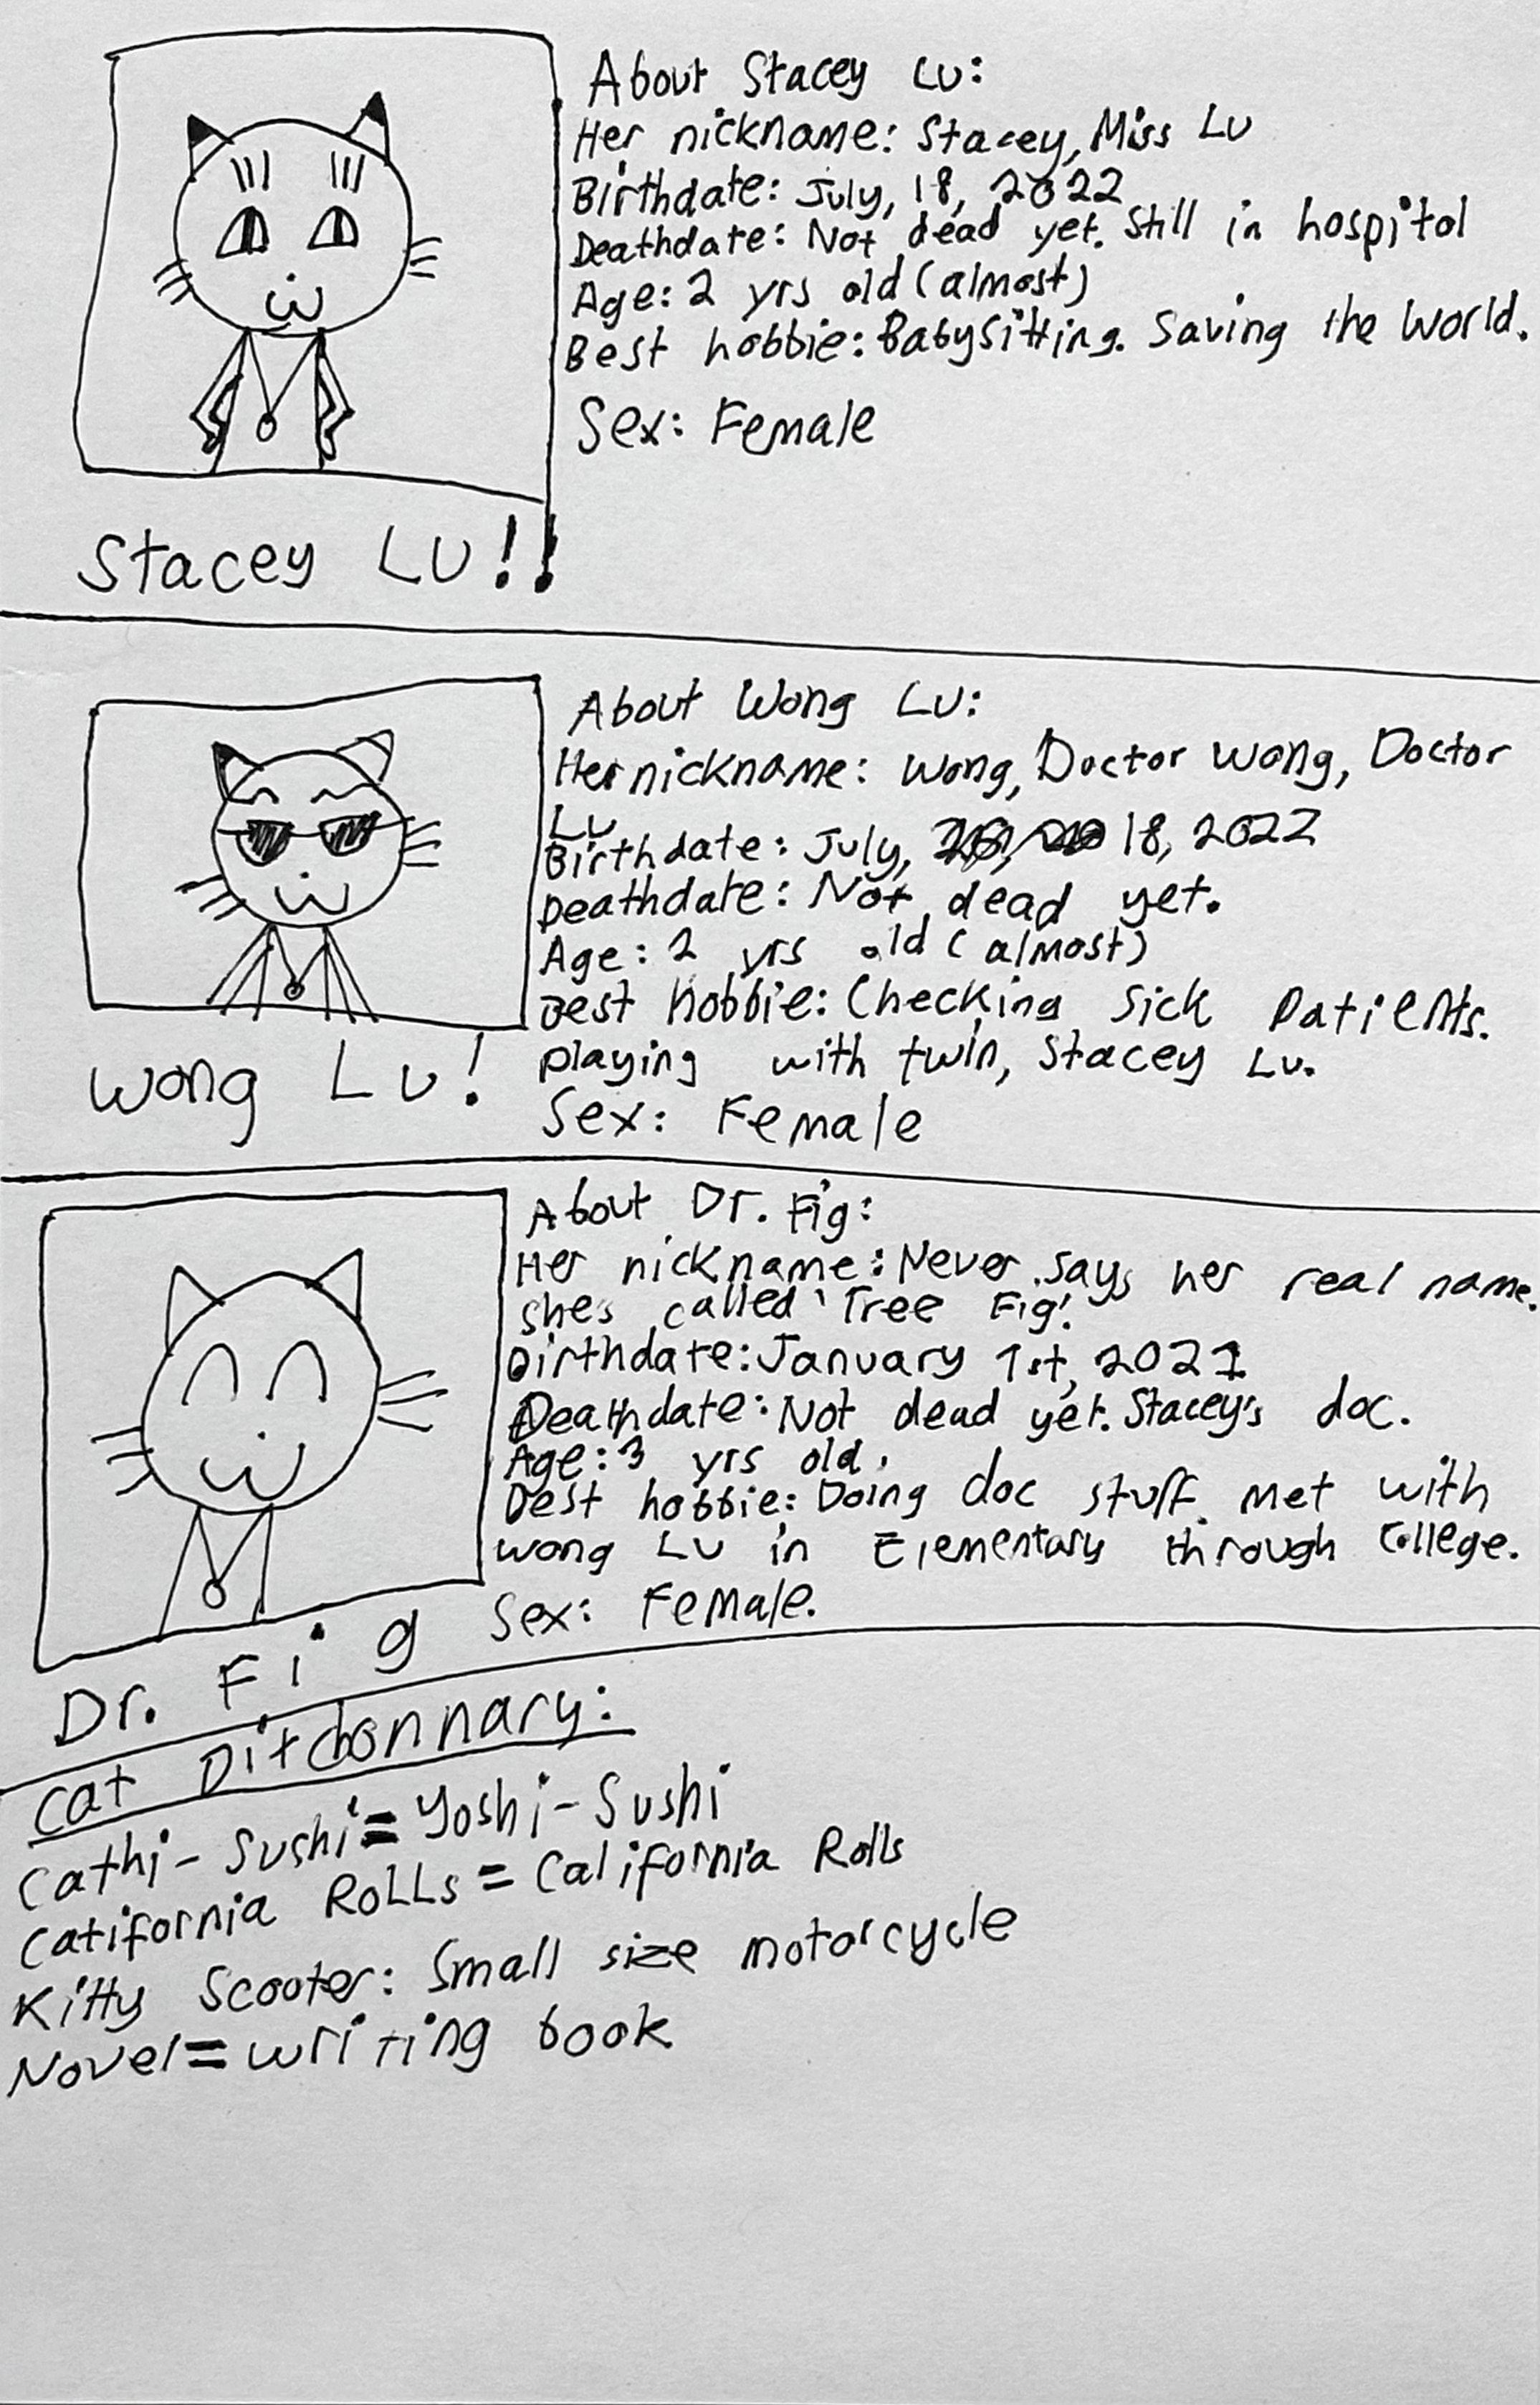 About Stacey Lu:
Her nickname: Stacey, Miss Lu
Birthdate: July, 18, 2022
Deathdate: Not dead yet. Still in hospitol
Age: 2 yrs old (almost)
Best hobbie: Babysitting. Saving the World.
Sex: Female
Stacey Lu!!
About Wong Lu:
Her nickname: Wong, Doctor Wong, Doctor
Lu
Birthdate: July, 18, 2022
Deathdate: Not dead yet.
Age: 2 yrs old (almost)
Best hobbie: Checking Sick Patients.
playing with twin, Stacey Lu.
Sex: Female
Wong Lu!
About Dr. Fig:
Her nickname: Never says her real name.
she's called 'Tree Fig!'
Birthdate: January 1st, 2021
Deathdate: Not dead yet. Stacey's doc.
Age: 3 yrs old.
Best hobbie: Doing doc stuff. Met with
Wong Lu in Elementary through College.
Sex: Female.
Dr. Fig
Cat Ditchonnary:
Cathi-Sushi = Yoshi-Sushi
Catifornia RoLLs = California Rolls
Kitty Scooter: Small size motorcycle
Novel = writing book